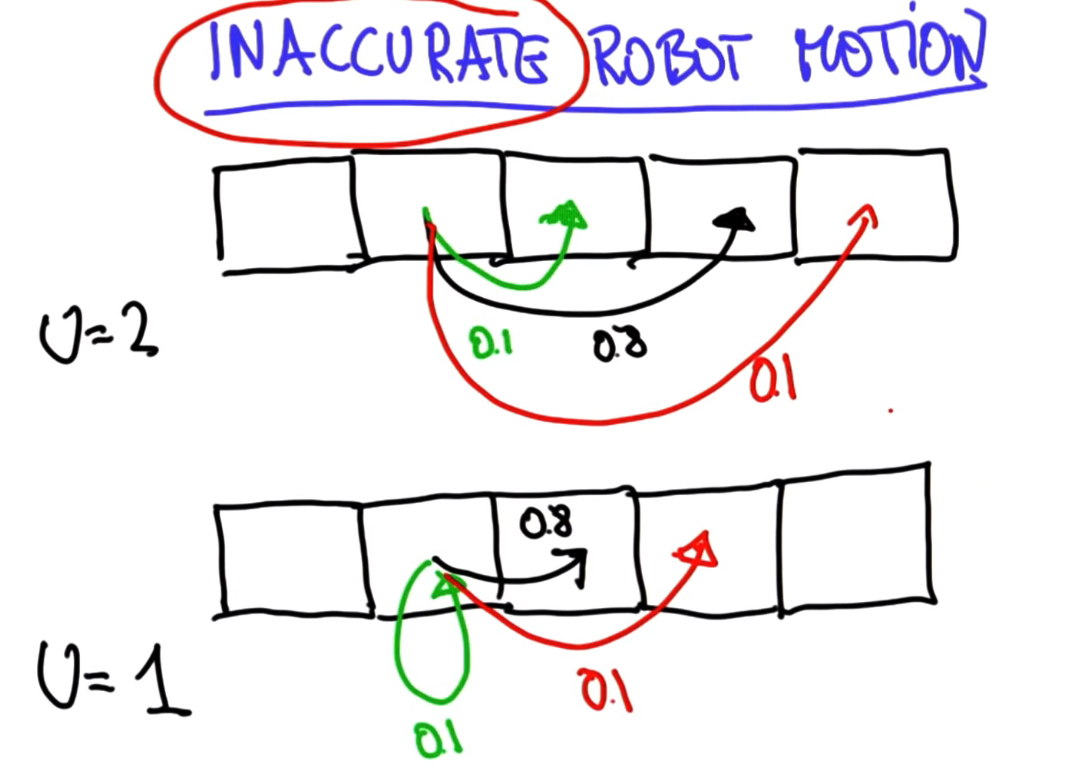 INACCURATE ROBOT MOTION
U=2
0.1 0.8 0.1
0.8
U=1
0.1
0.1